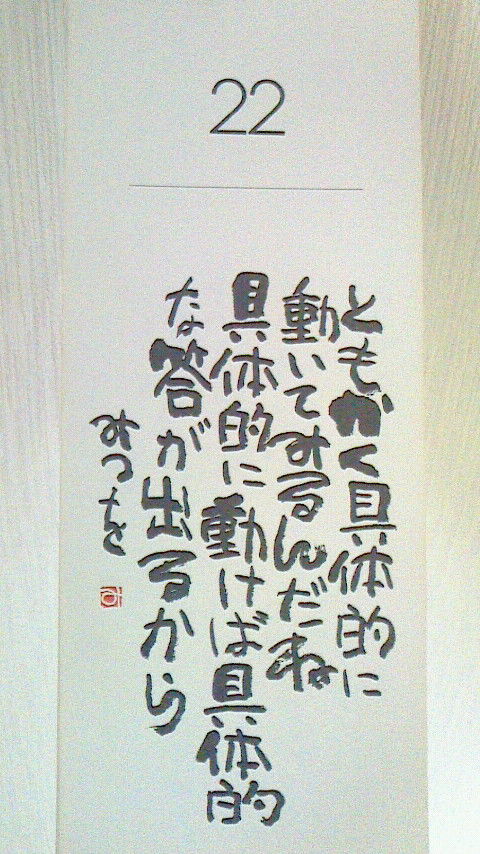 22
ともかく具体的に
動いてみるんだね
具体的に動けば具体的
な答が出るから
みつを